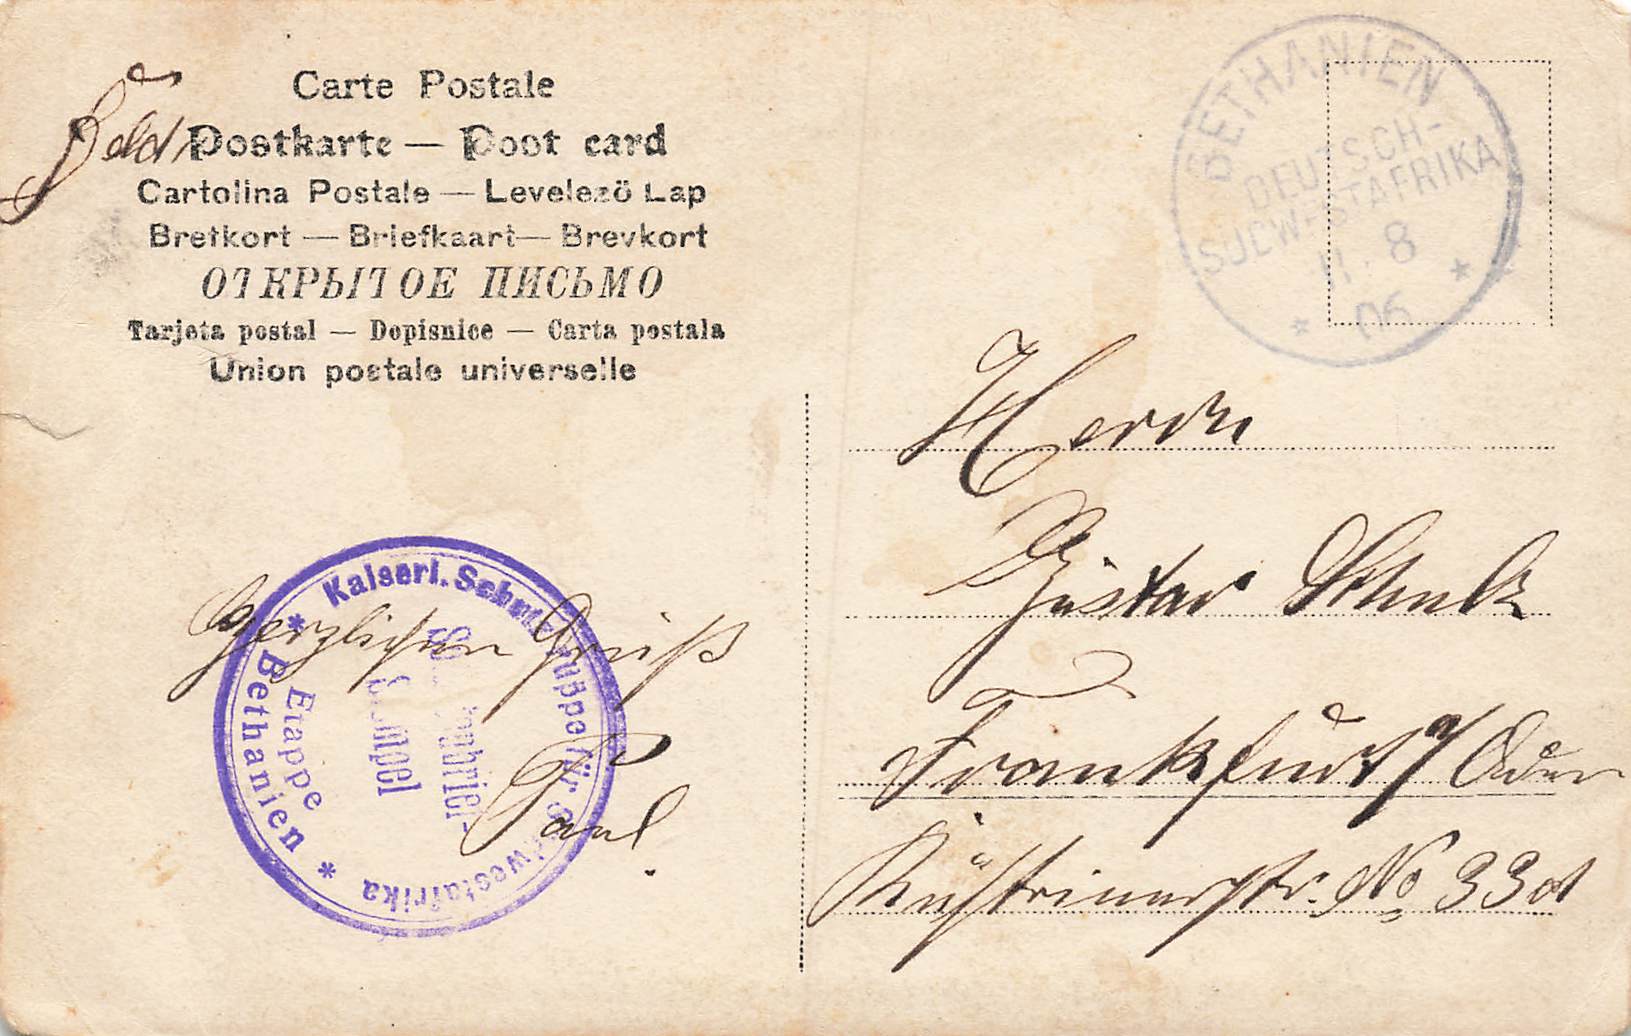 Carte Postale
Feld Postkarte — Post card
Cartolina Postale — Levelező Lap
Brefkort — Briefkaart — Brevkort
ОТКРЫТОЕ ПИСЬМО
Tarjeta postal — Dopisnice — Carta postala
Union postale universelle
BETHANIEN
DEUTSCH-
SÜDWESTAFRIKA
11. 8
06
Herrn
Gustav Schulz
Frankfurt a/Oder
Küstrinerstr. No 33a
Herzlichen Gruß
Paul.
Kaiserl. Schutztruppe für Südwestafrika
Etappe
Bethanien
Stempel